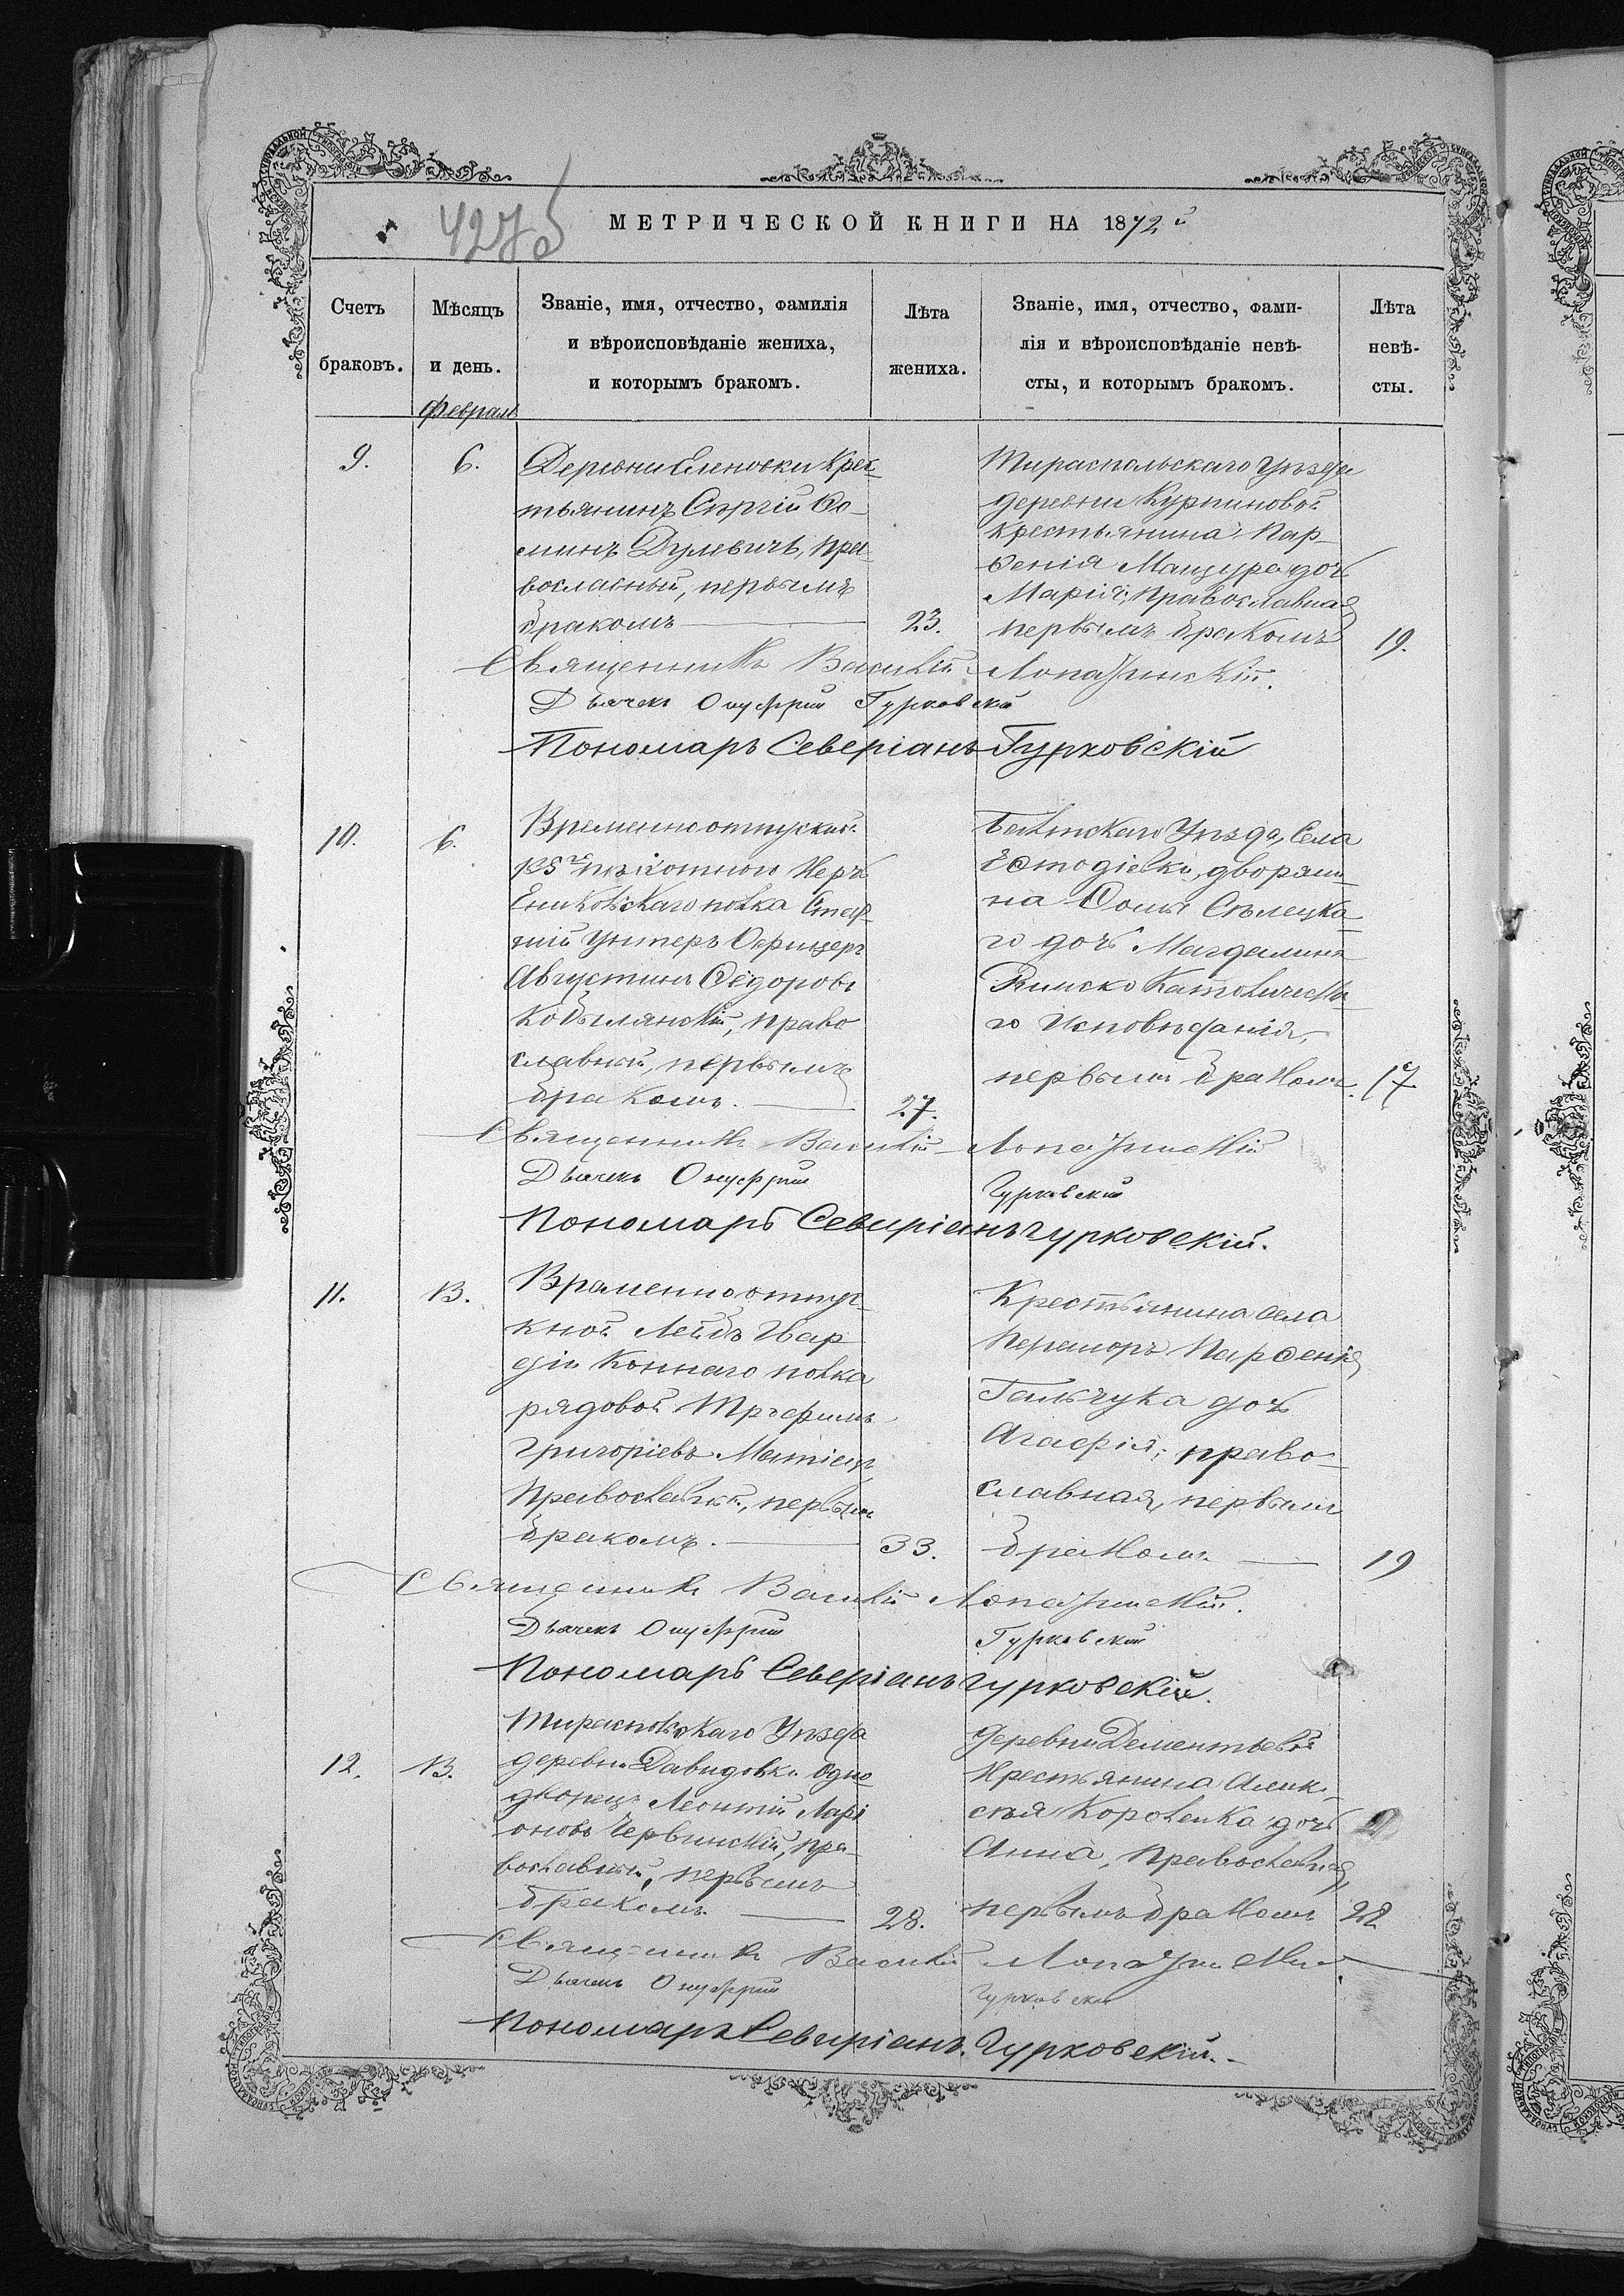 427об
МЕТРИЧЕСКОЙ КНИГИ НА 1872й
Счетъ браковъ.
Мѣсяцъ и день.
Званіе, имя, отчество, фамилія
и вѣроисповѣданіе жениха,
и которымъ бракомъ.
Лѣта жениха.
Званіе, имя, отчество, фами-
лія и вѣроисповѣданіе невѣ-
сты, и которымъ бракомъ.
Лѣта невѣ-
сты.
Февраль
9.
6.
Деревни Еленовки Крес-
тьянинъ Сергій Ѳо-
минъ Дулевичъ, пра-
вославный, первымъ
бракомъ
23.
Тираспольскаго Уѣзда
деревни
крестьянина Пар-
ѳенія Мацура дочь
Марія, Православная
первымъ бракомъ
19.
Священникъ Василій Лопатинскій.
Дьячекъ Онуфрий Гурковскій
Пономарь Северіанъ Гурковскій
10.
6.
Временноотпускн.
135го пѣхотнаго Керчь
Ениковскаго полка Стар-
шій Унтеръ Офицеръ
Августинъ Ѳедоровъ
Кобылянскій, право
славный, первымъ
бракомъ.
27.
Балтскаго Уѣзда, Села
дворяни-
на Ѳомы Сѣлецка-
го дочь Магдалина
Римско Католическа
го Исповѣданія,
первымъ бракомъ.
17
Священникъ Василій Лопатинскій
Дьячекъ Онуфрий Гурковский
Пономарь Севиріанъ Гурковскій.
11.
13.
Временноотпус-
кной Лейбъ Гвар
діи Коннаго полка
рядовой Трофимъ
Григоріевъ Матіецъ
Православный, первымъ
бракомъ.
33.
Крестьянина села
Перешоръ Парѳенія
Гальчука дочь
Агафія; право-
славная, первымъ
бракомъ
19
Священникъ Василій Лопатинскій.
Дьячекъ Онуфрий Гурковский
Пономарь Северіанъ Гурковскій.
12.
13.
Тираспольскаго Уѣзда
деревни Давидовки Одно
дворецъ Леонтій Ларі
оновъ Червинскій, пра-
вославный, первымъ
бракомъ
28.
деревни Дементьевой
Крестьянина Алек-
сѣя Короленка дочь
Анна, Православная,
первымъ бракомъ
22
Священникъ Василій Лопатинскій
Дьячекъ Онуфрий Гурковскій
Пономарь Севиріанъ Гурковскій.